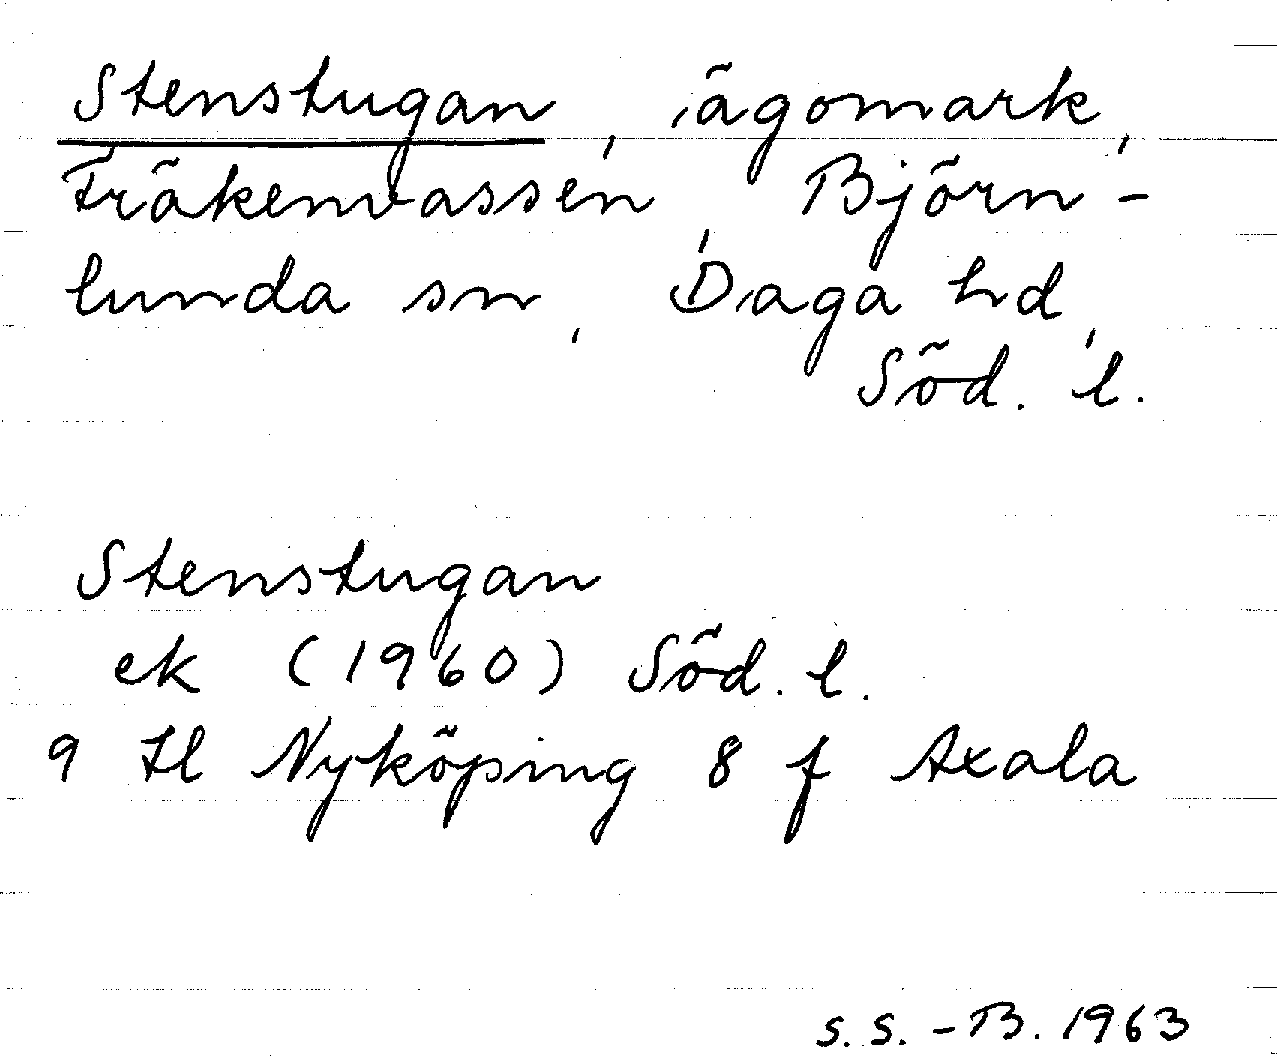 Stenstugan, ägomark,
Fräkenvassen, Björn-
lunda sn, Daga hd,
Söd. l.
Stenstugan
ek (1960) Söd. l.
9 H l Nyköping 8 f Axala
S. S. - B. 1963